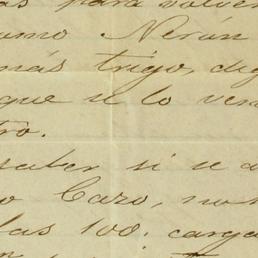 as para volver
como Nerón
más trigo, dig
que se lo ven
tro.
saber si se a
o Cazo, no
las 100. carga